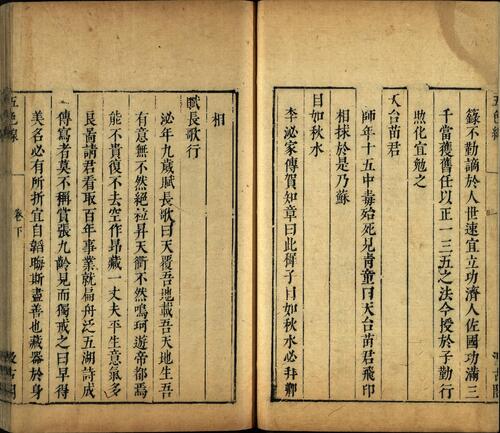 籙不勤謫於人世速宜立功濟人佐國功滿三
千當獲舊任以正一三五之法令授於子勤行
煦化宜勉之
天台苗君
師年十五中毒殆死見青童曰天台苗君飛印
相捄於是乃蘇
目如秋水
李泌家傳賀知章曰此稺子目如秋水必拜卿
相
賦長歌行
泌年九歲賦長歌曰天覆吾地載吾天地生吾
有意無不然絕粒昇天衢不然鳴珂遊帝都焉
能不貴復不去空作昂藏一丈夫平生意氣多
良啚請君看取百年事業就扁舟泛五湖詩成
傳寫者莫不稱賞張九齡見而獨戒之曰早得
美名必有所折宜自韜晦斯盡善也藏器於身
五色線
卷下